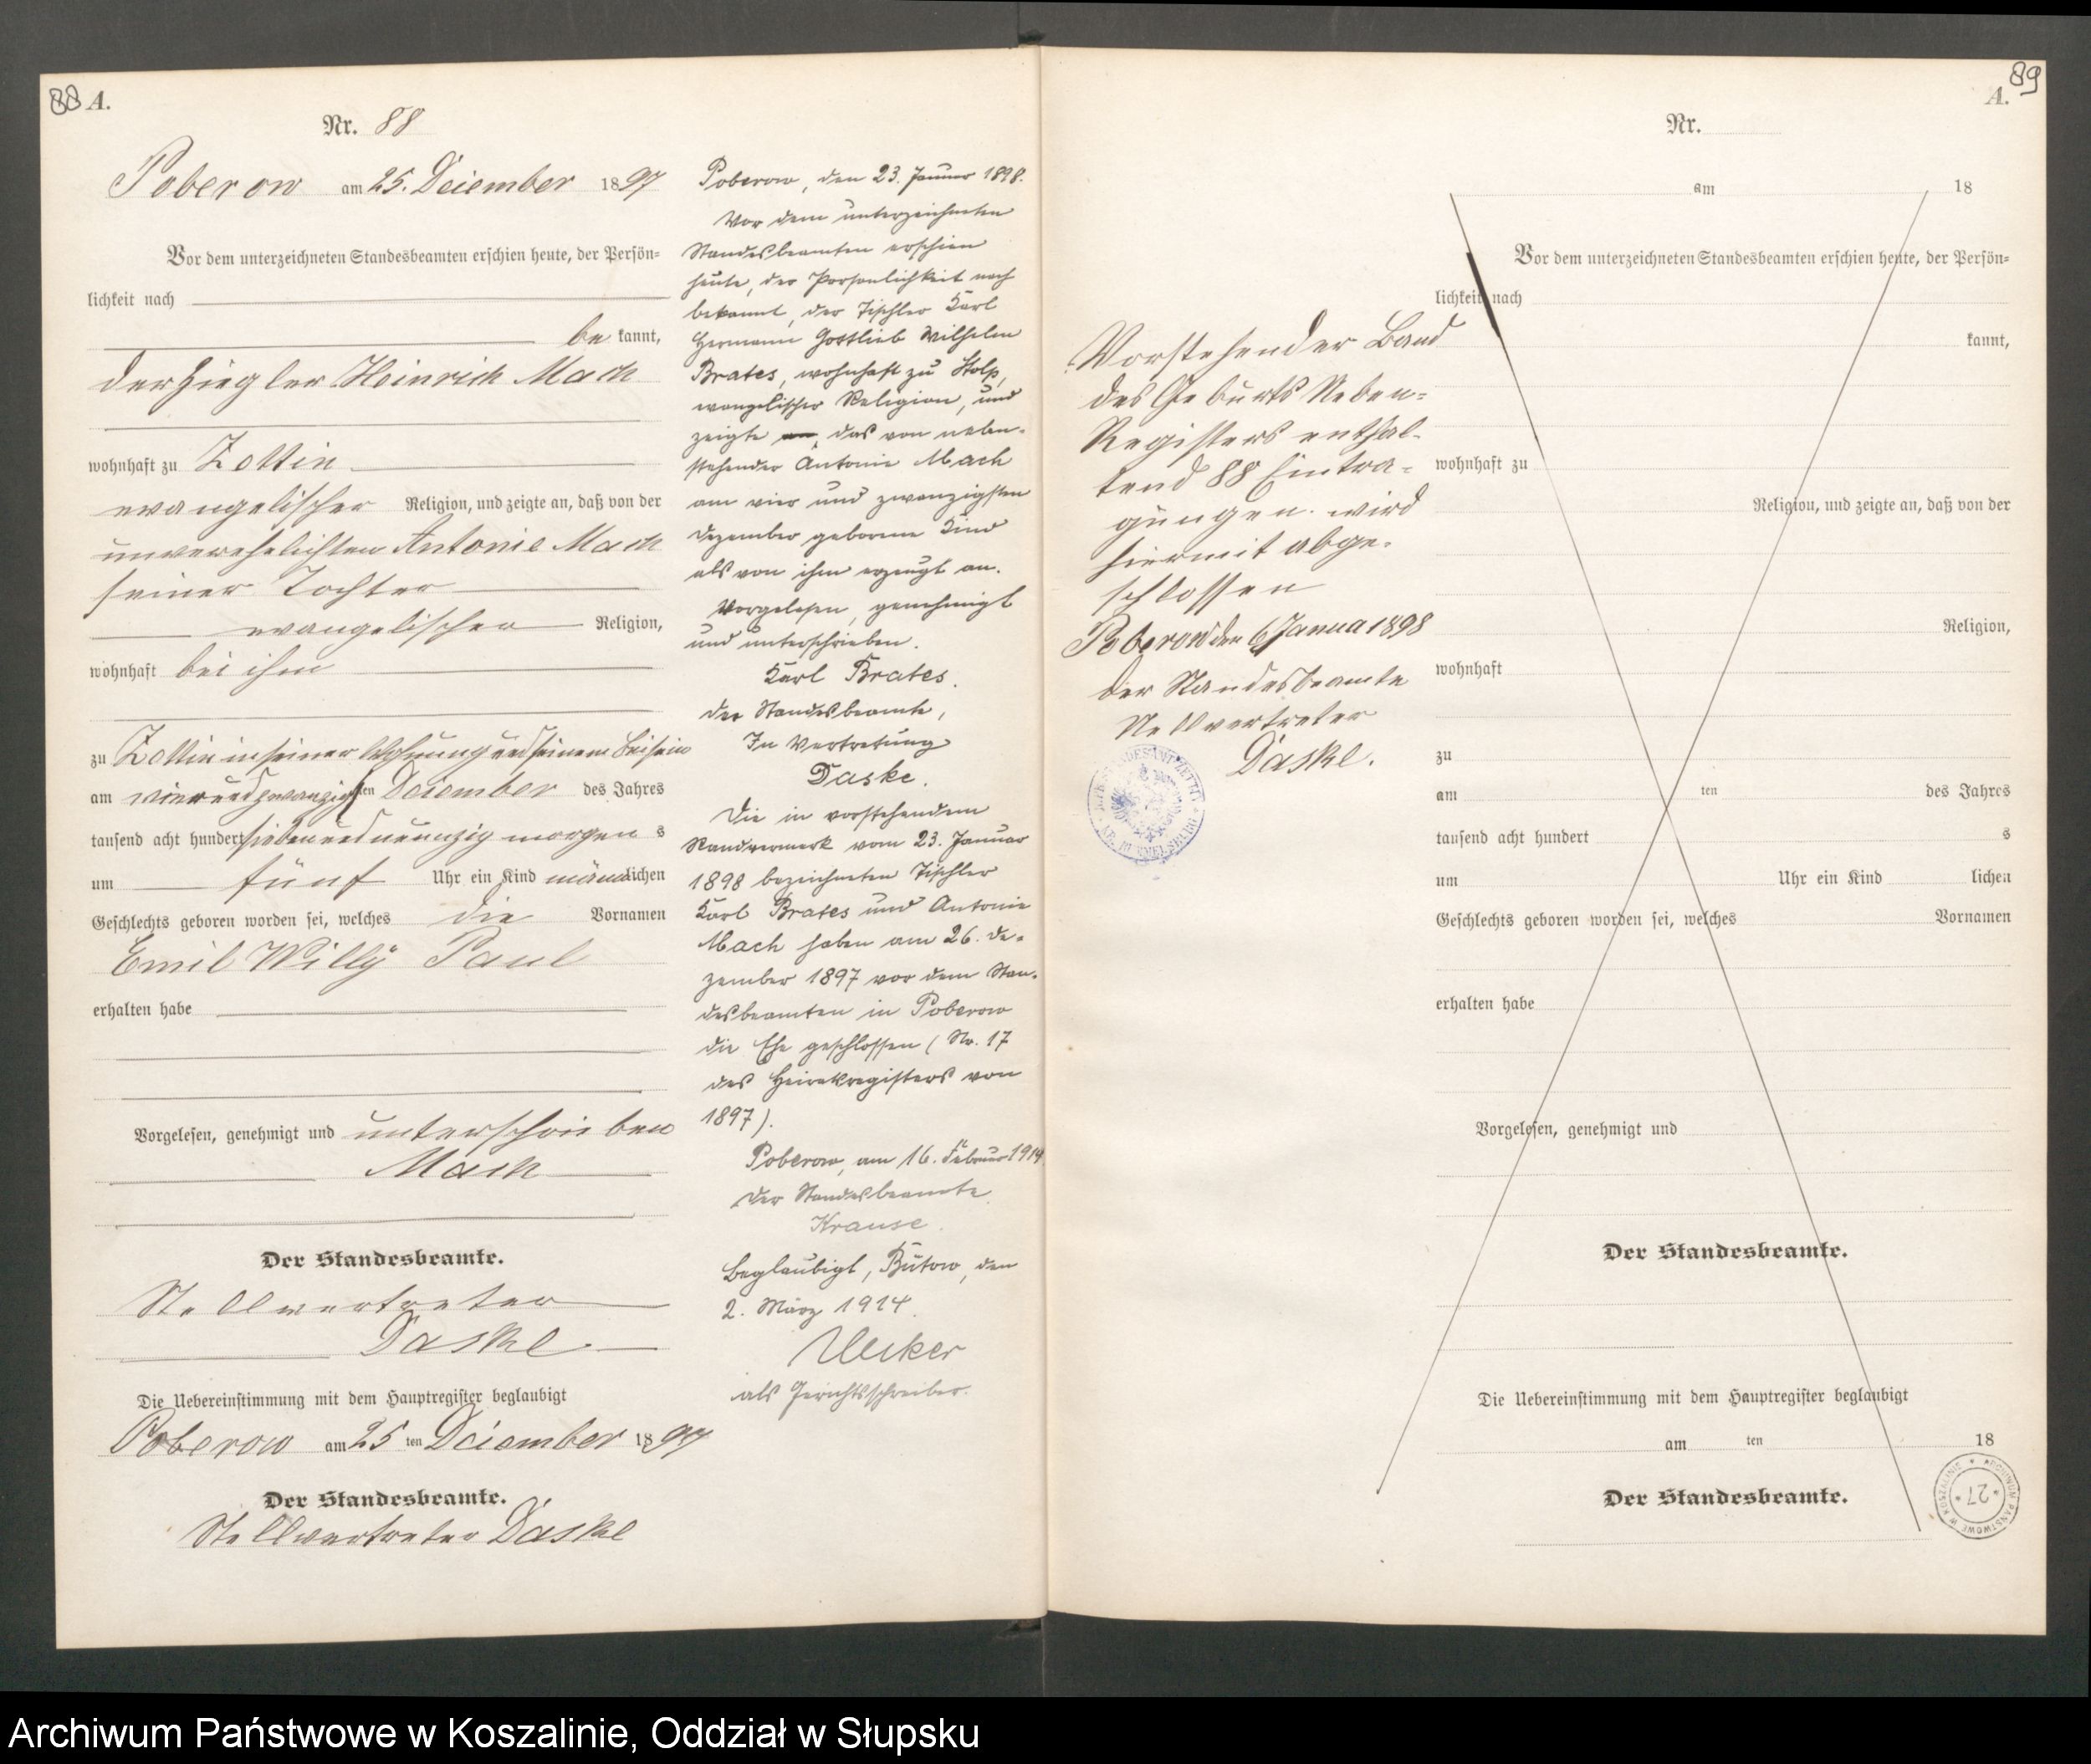 88 A.
Nr. 88
Poberow am 25. December 1897
Vor dem unterzeichneten Standesbeamten erschien heute, der Persön-
lichkeit nach
be kannt,
der Ziegler Heinrich Mach
wohnhaft zu Zettin
evangelischer Religion, und zeigte an, daß von der
unverehelichten Antonie Mach
seiner Tochter
evangelischer Religion,
wohnhaft bei ihm
zu Zettin in seiner Wohnung und seinem Beisein
am vierundzwanzigsten December des Jahres
tausend acht hundert siebenundneunzig morgens
um fünf Uhr ein Kind männlichen
Geschlechts geboren worden sei, welches die Vornamen
Emil Willÿ Paul
erhalten habe
Vorgelesen, genehmigt und unterschrieben
Mach
Der Standesbeamte.
Stellvertreter
Daske
Die Uebereinstimmung mit dem Hauptregister beglaubigt
Poberow am 25 ten December 1897
Der Standesbeamte.
Stellvertreter Daske
Poberow, den 23. Januar 1898.
Vor dem unterzeichneten
Standesbeamten erschien
heute, der Persönlichkeit nach
bekannt, der Tischler Karl
Hermann Gottlieb Wilhelm
Brates, wohnhaft zu Stolp,
evangelischer Religion, und
zeigte an, das von neben-
stehender Antonie Mach
am vier und zwanzigsten
Dezember geborene Kind
als von ihm erzeugt an.
Vorgelesen, genehmigt
und unterschrieben.
Karl Brates.
Der Standesbeamte,
In Vertretung
Daske.
Die in vorstehendem
Randvermerk vom 23. Januar
1898 bezeichneten Tischler
Karl Brates und Antonie
Mach haben am 26. De-
zember 1897 vor dem Stan-
desbeamten in Poberow
die Ehe geschlossen (No. 17
des Heiratsregisters von
1897).
Poberow, am 16. Februar 1914
Der Standesbeamte.
Krause.
Beglaubigt, Bütow, den
2. März 1914.
Uecker
als Gerichtsschreiber.
89
A.
Nr.
am 18
Vor dem unterzeichneten Standesbeamten erschien heute, der Persön-
lichkeit nach
kannt,
wohnhaft zu
Religion, und zeigte an, daß von der
Religion,
wohnhaft
zu
am ten des Jahres
tausend acht hundert s
um Uhr ein Kind lichen
Geschlechts geboren worden sei, welches Vornamen
erhalten habe
Vorgelesen, genehmigt und
Der Standesbeamte.
Die Uebereinstimmung mit dem Hauptregister beglaubigt
am ten 18
Der Standesbeamte.
Vorstehender Band
des Geburts Neben-
Registers enthal-
tend 88 Eintra-
gungen wird
hiermit abge-
schlossen
Poberow den 6 Janua 1898
Der Standesbeamte
Stellvertreter
Daske.
ARCHIWUM PAŃSTWOWE W KOSZALINIE
27
Archiwum Państwowe w Koszalinie, Oddział w Słupsku